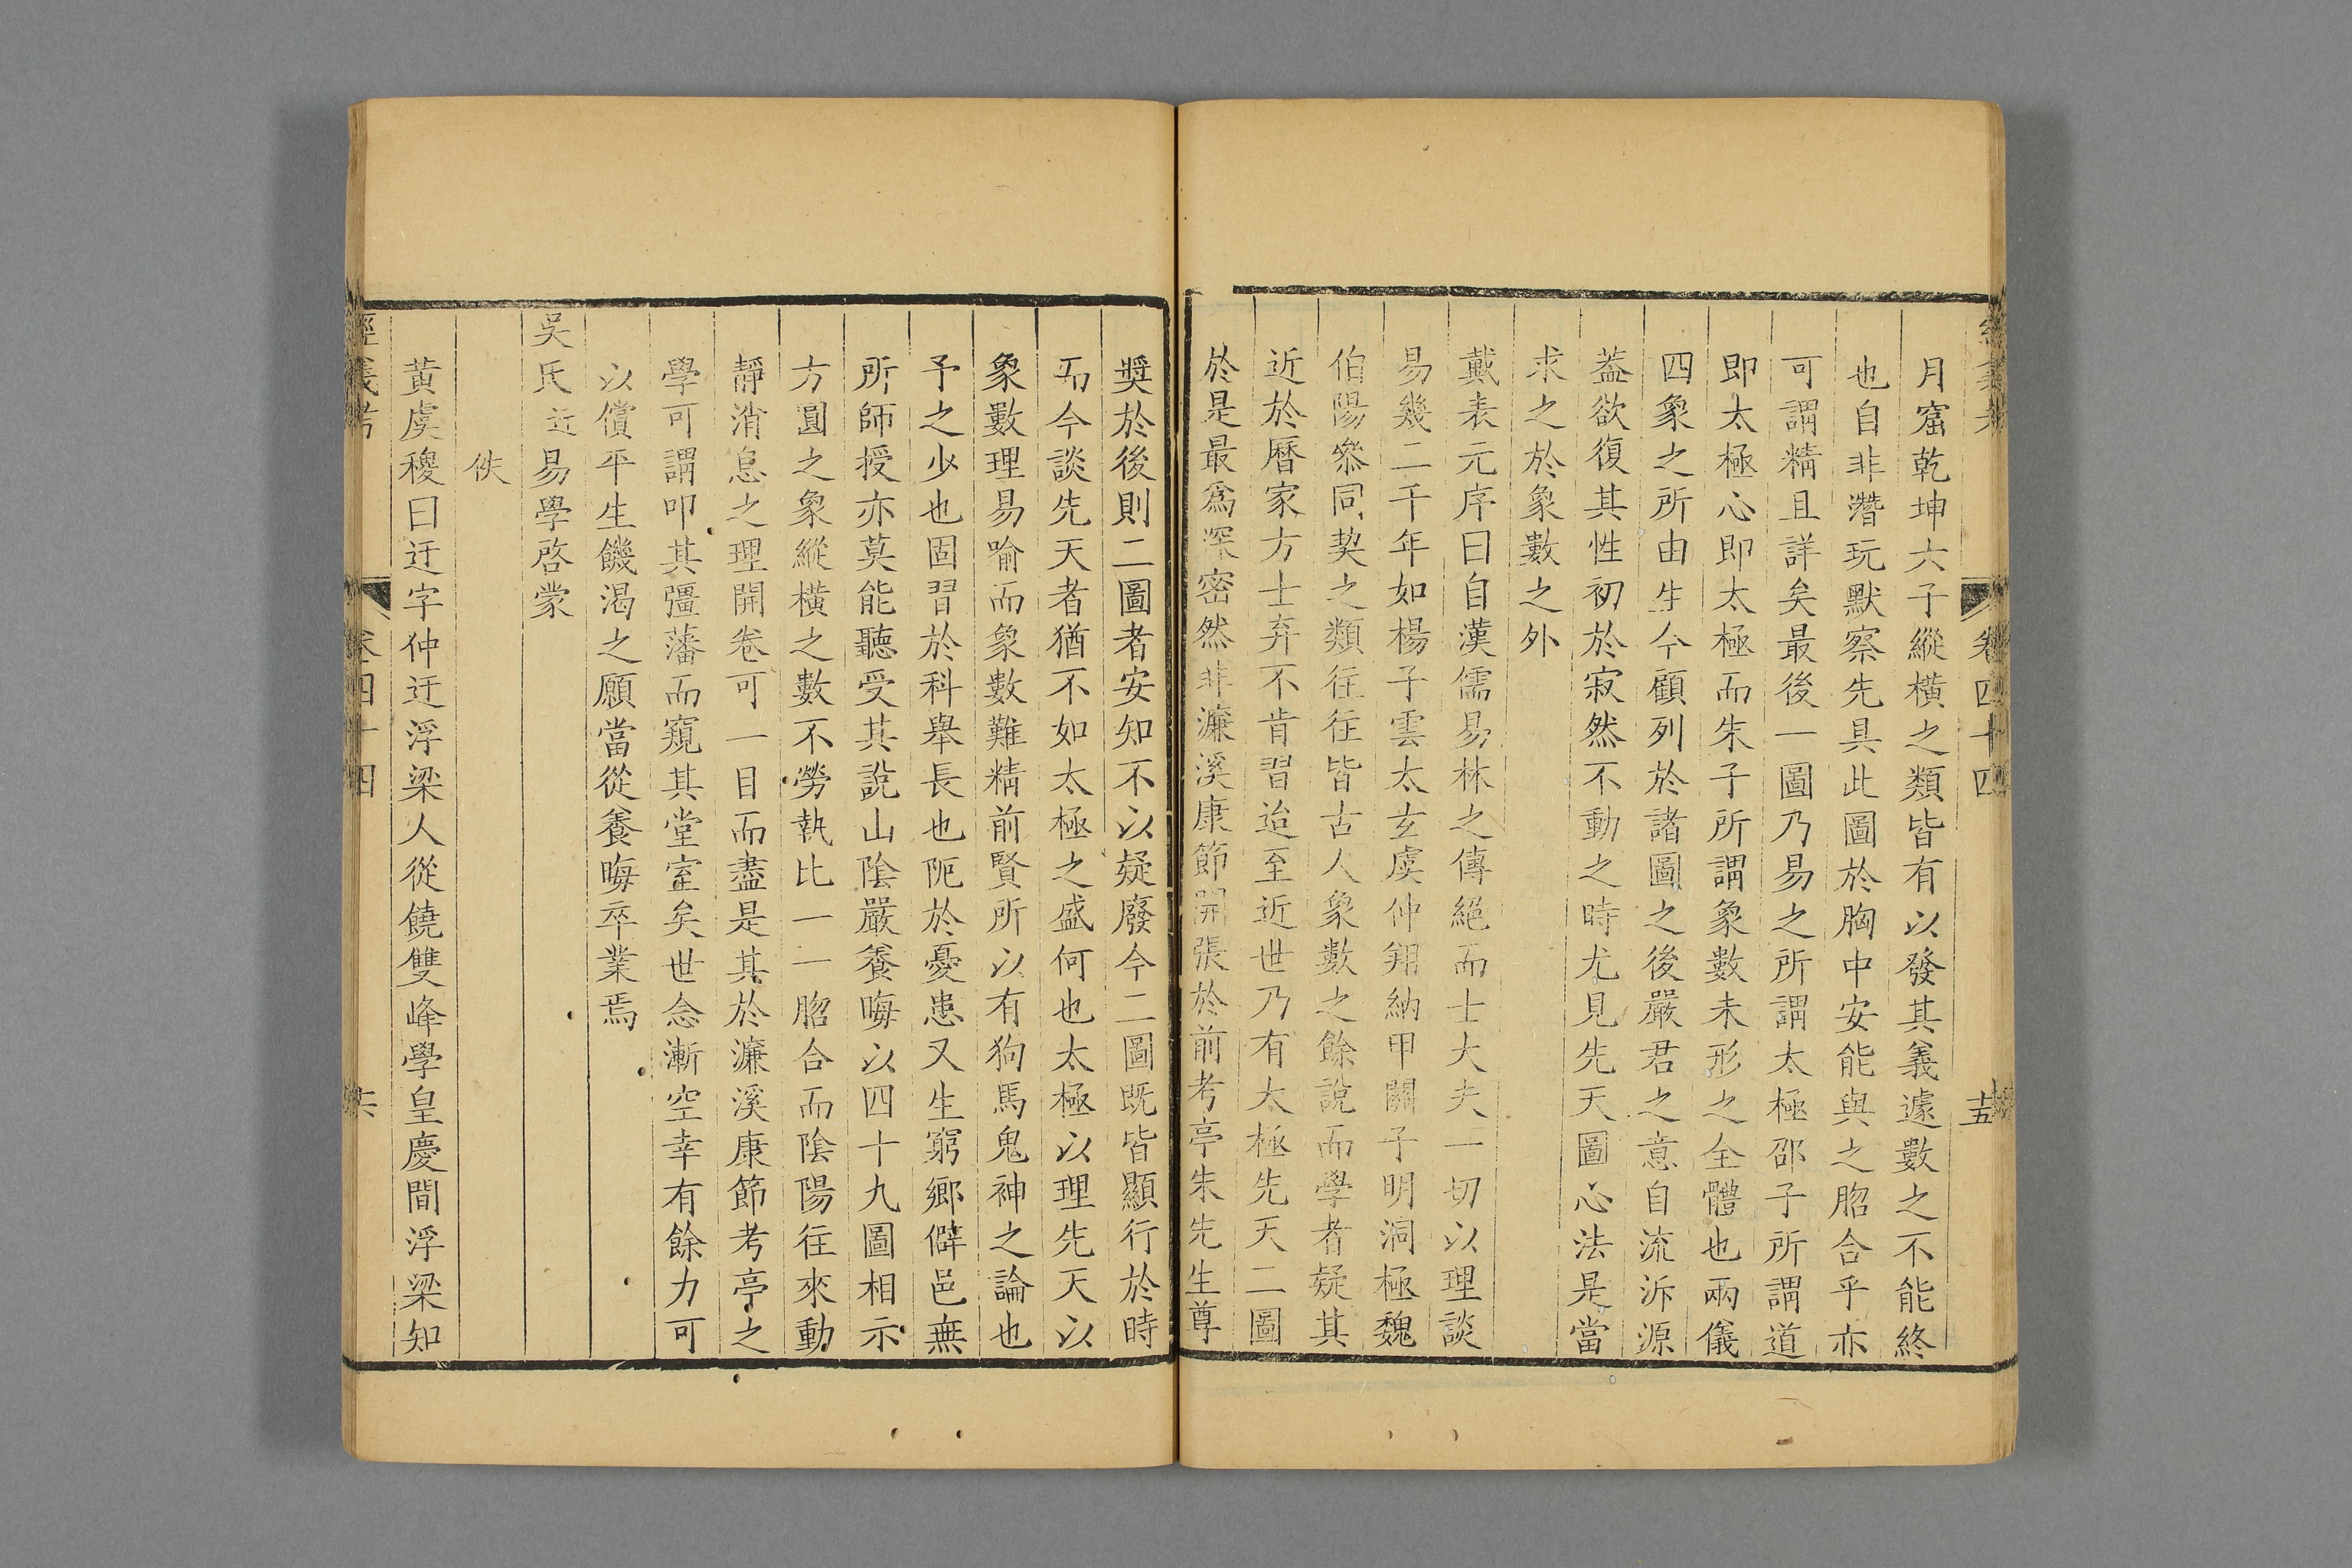 卷四十四
十五
月窟乾坤六子縱橫之類皆有以發其義遽數之不能終
也自非潛玩默察先具此圖於胸中安能與之脗合乎亦
可謂精且詳矣最後一圖乃易之所謂太極邵子所謂道
即太極心即太極而朱子所謂象數未形之全體也兩儀
四象之所由生今顧列於諸圖之後嚴君之意自流泝源
葢欲復其性初於寂然不動之時尤見先天圖心法是當
求之於象數之外
戴表元序曰自漢儒易林之傳絕而士大夫一切以理談
易幾二千年如楊子雲太玄虞仲翔納甲關子明洞極魏
伯陽叅同契之類往往皆古人象數之餘說而學者疑其
近於曆家方士弃不肯習迨至近世乃有太極先天二圖
於是最爲深密然非濂溪康節開張於前考亭朱先生尊
奬於後則二圖者安知不以疑廢今二圖既皆顯行於時
而今談先天者猶不如太極之盛何也太極以理先天以
象數理易喻而象數難精前賢所以有狗馬鬼神之論也
予之少也固習於科舉長也阨於憂患又生窮鄉僻邑無
所師授亦莫能聽受其說山陰嚴養晦以四十九圖相示
方圓之象縱橫之數不勞執比一一脗合而陰陽往來動
靜消息之理開卷可一目而盡是其於濂溪康節考亭之
學可謂叩其彊藩而窺其堂室矣世念漸空幸有餘力可
以償平生饑渴之願當從養晦卒業焉
吳氏迂易學啓蒙
佚
黃虞稷曰迂字仲迂浮梁人從饒雙峰學皇慶間浮梁知
經義考
卷四十四
共